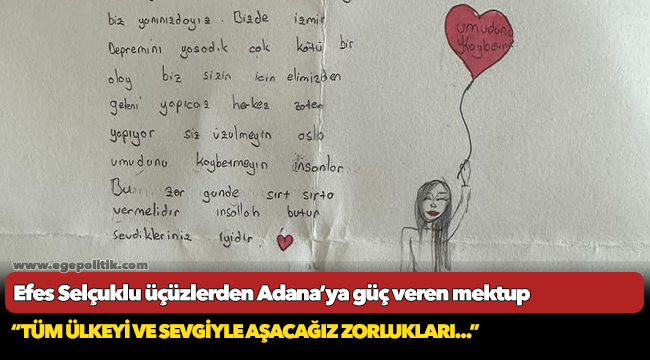 biz yanınızdayız. Bizde izmir
Depremini yaşadık çok kötü bir
olay biz sizin için elimizden
geleni yapıcaz herkez zaten
yapıyor siz üzülmeyin asla
umudunu kaybetmeyin insanlar
Bu zor günde sırt sırta
vermelidir inşallah bütün
sevdikleriniz iyidir.
umudunu
Kaybetme
www.egepolitik.com
Efes Selçuklu üçüzlerden Adana'ya güç veren mektup
“TÜM ÜLKEYİ VE SEVGİYLE AŞACAĞIZ ZORLUKLARI...”